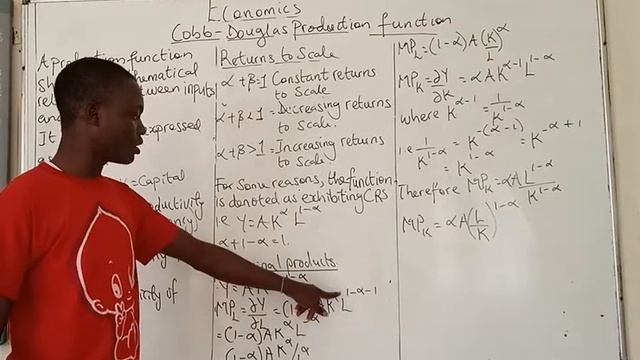 Economics
Cobb-Douglas Production function
A production function
Sh thematical
re between inputs
and
It expressed
as
= Capital
ductivity
ency
ivity of
Returns to Scale
α+β=1 Constant returns
to Scale
α+β<1 = Decreasing returns
to Scale.
α+β>1 = Increasing returns
to Scale
For Some reasons, the function
is denoted as exhibiting CRS
i.e Y=AK^α L^1-α
α+1-α=1.
nal products
Y=AK 1-α
MP_L=∂Y/∂L=(1-α)AK^α L^1-α-1
=(1-α)AK^α L^-α
=(1-α)AK^α/L^α
MP_L=(1-α)A(K/L)^α
MP_K=∂Y/∂K=αAK^α-1 L^1-α
where K^α-1=1/K^1-α
i.e 1/K^1-α=K^-(α-1)=K^-α+1
=K^1-α
Therefore MP_K=αAL^1-α/K^1-α
MP_K=αA(L/K)^1-α